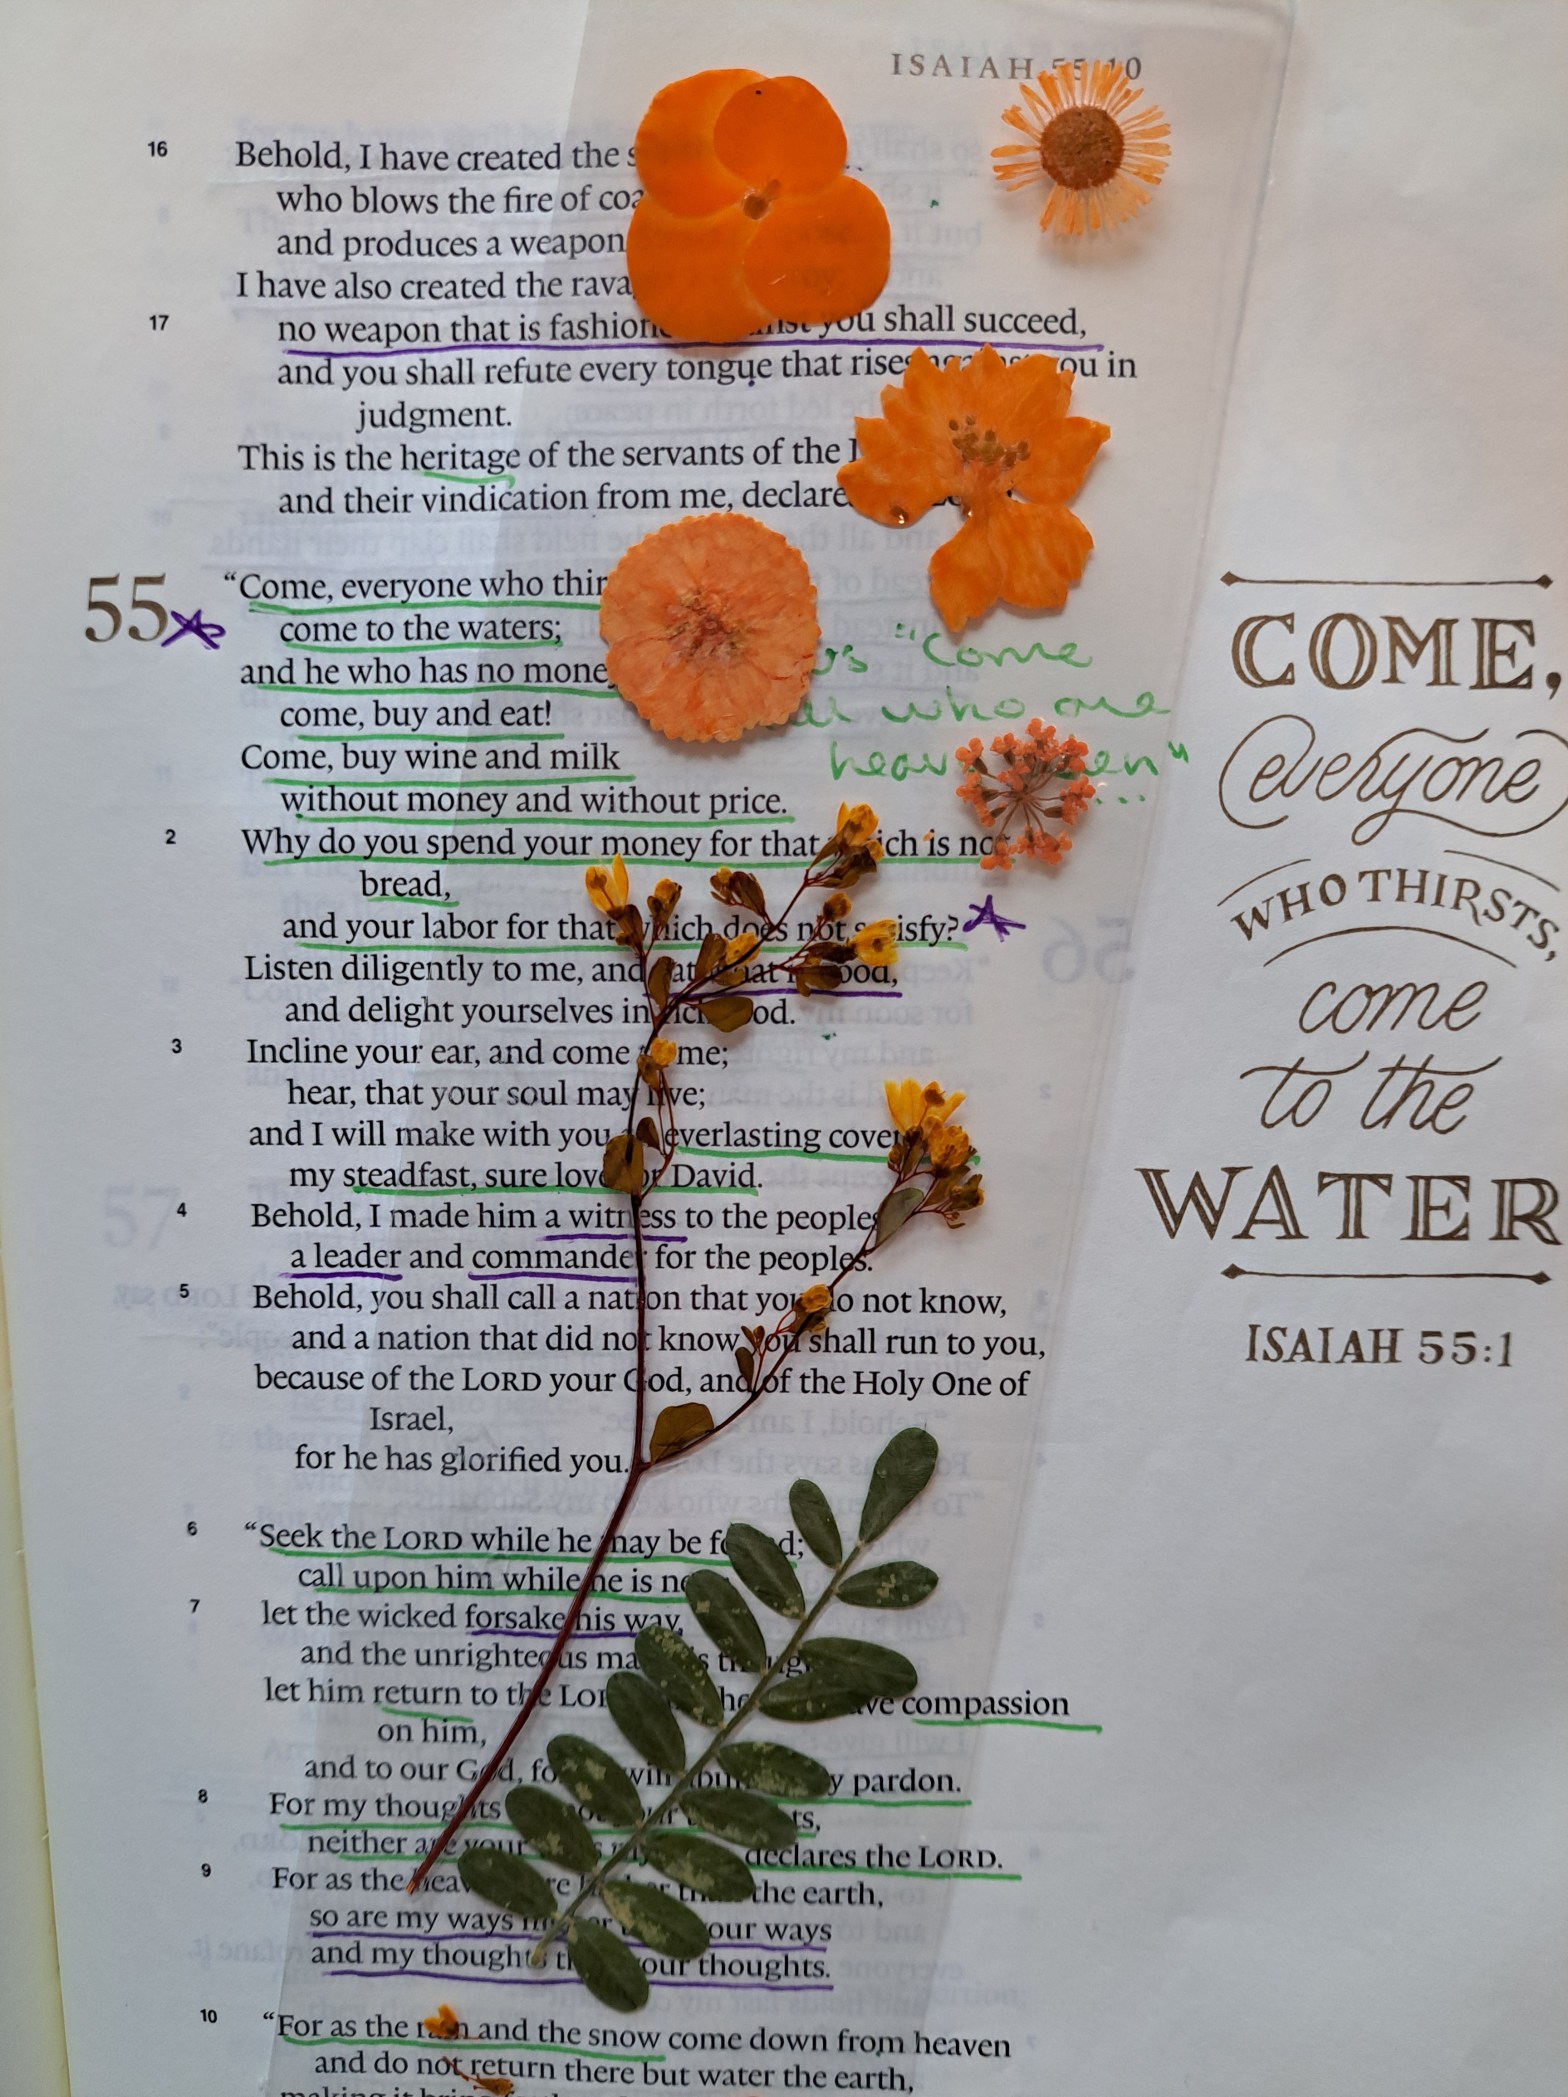 ISAIAH 55:10
16 Behold, I have created the
who blows the fire of
and produces a weapon
I have also created the
17 no weapon that is fashioned against you shall succeed,
and you shall refute every tongue that rises against you in
judgment.
This is the heritage of the servants of the
and their vindication from me, declares
55 “Come, everyone who
come to the waters;
and he who has no money
come, buy and eat!
Come, buy wine and milk
without money and without price.
"Come
who are
2 Why do you spend your money for that which is not
bread,
and your labor for that which does not satisfy?
Listen diligently to me, and eat what is good,
and delight yourselves in rich food.
3 Incline your ear, and come to me;
hear, that your soul may live;
and I will make with you everlasting
my steadfast, sure love for David.
4 Behold, I made him a witness to the peoples
a leader and commander for the peoples.
5 Behold, you shall call a nation that you do not know,
and a nation that did not know you shall run to you,
because of the LORD your God, and of the Holy One of
Israel,
for he has glorified you.
6 “Seek the LORD while he may be found;
call upon him while he is
7 let the wicked forsake his way,
and the unrighteous
let him return to the LORD compassion
on him,
and to our God, pardon.
8 For my thoughts
neither are your declares the LORD.
9 For as the the earth,
so are my ways your ways
and my thoughts your thoughts.
10 “For as the rain and the snow come down from heaven
and do not return there but water the earth,
COME,
everyone
WHO THIRSTS,
come
to the
WATER
ISAIAH 55:1